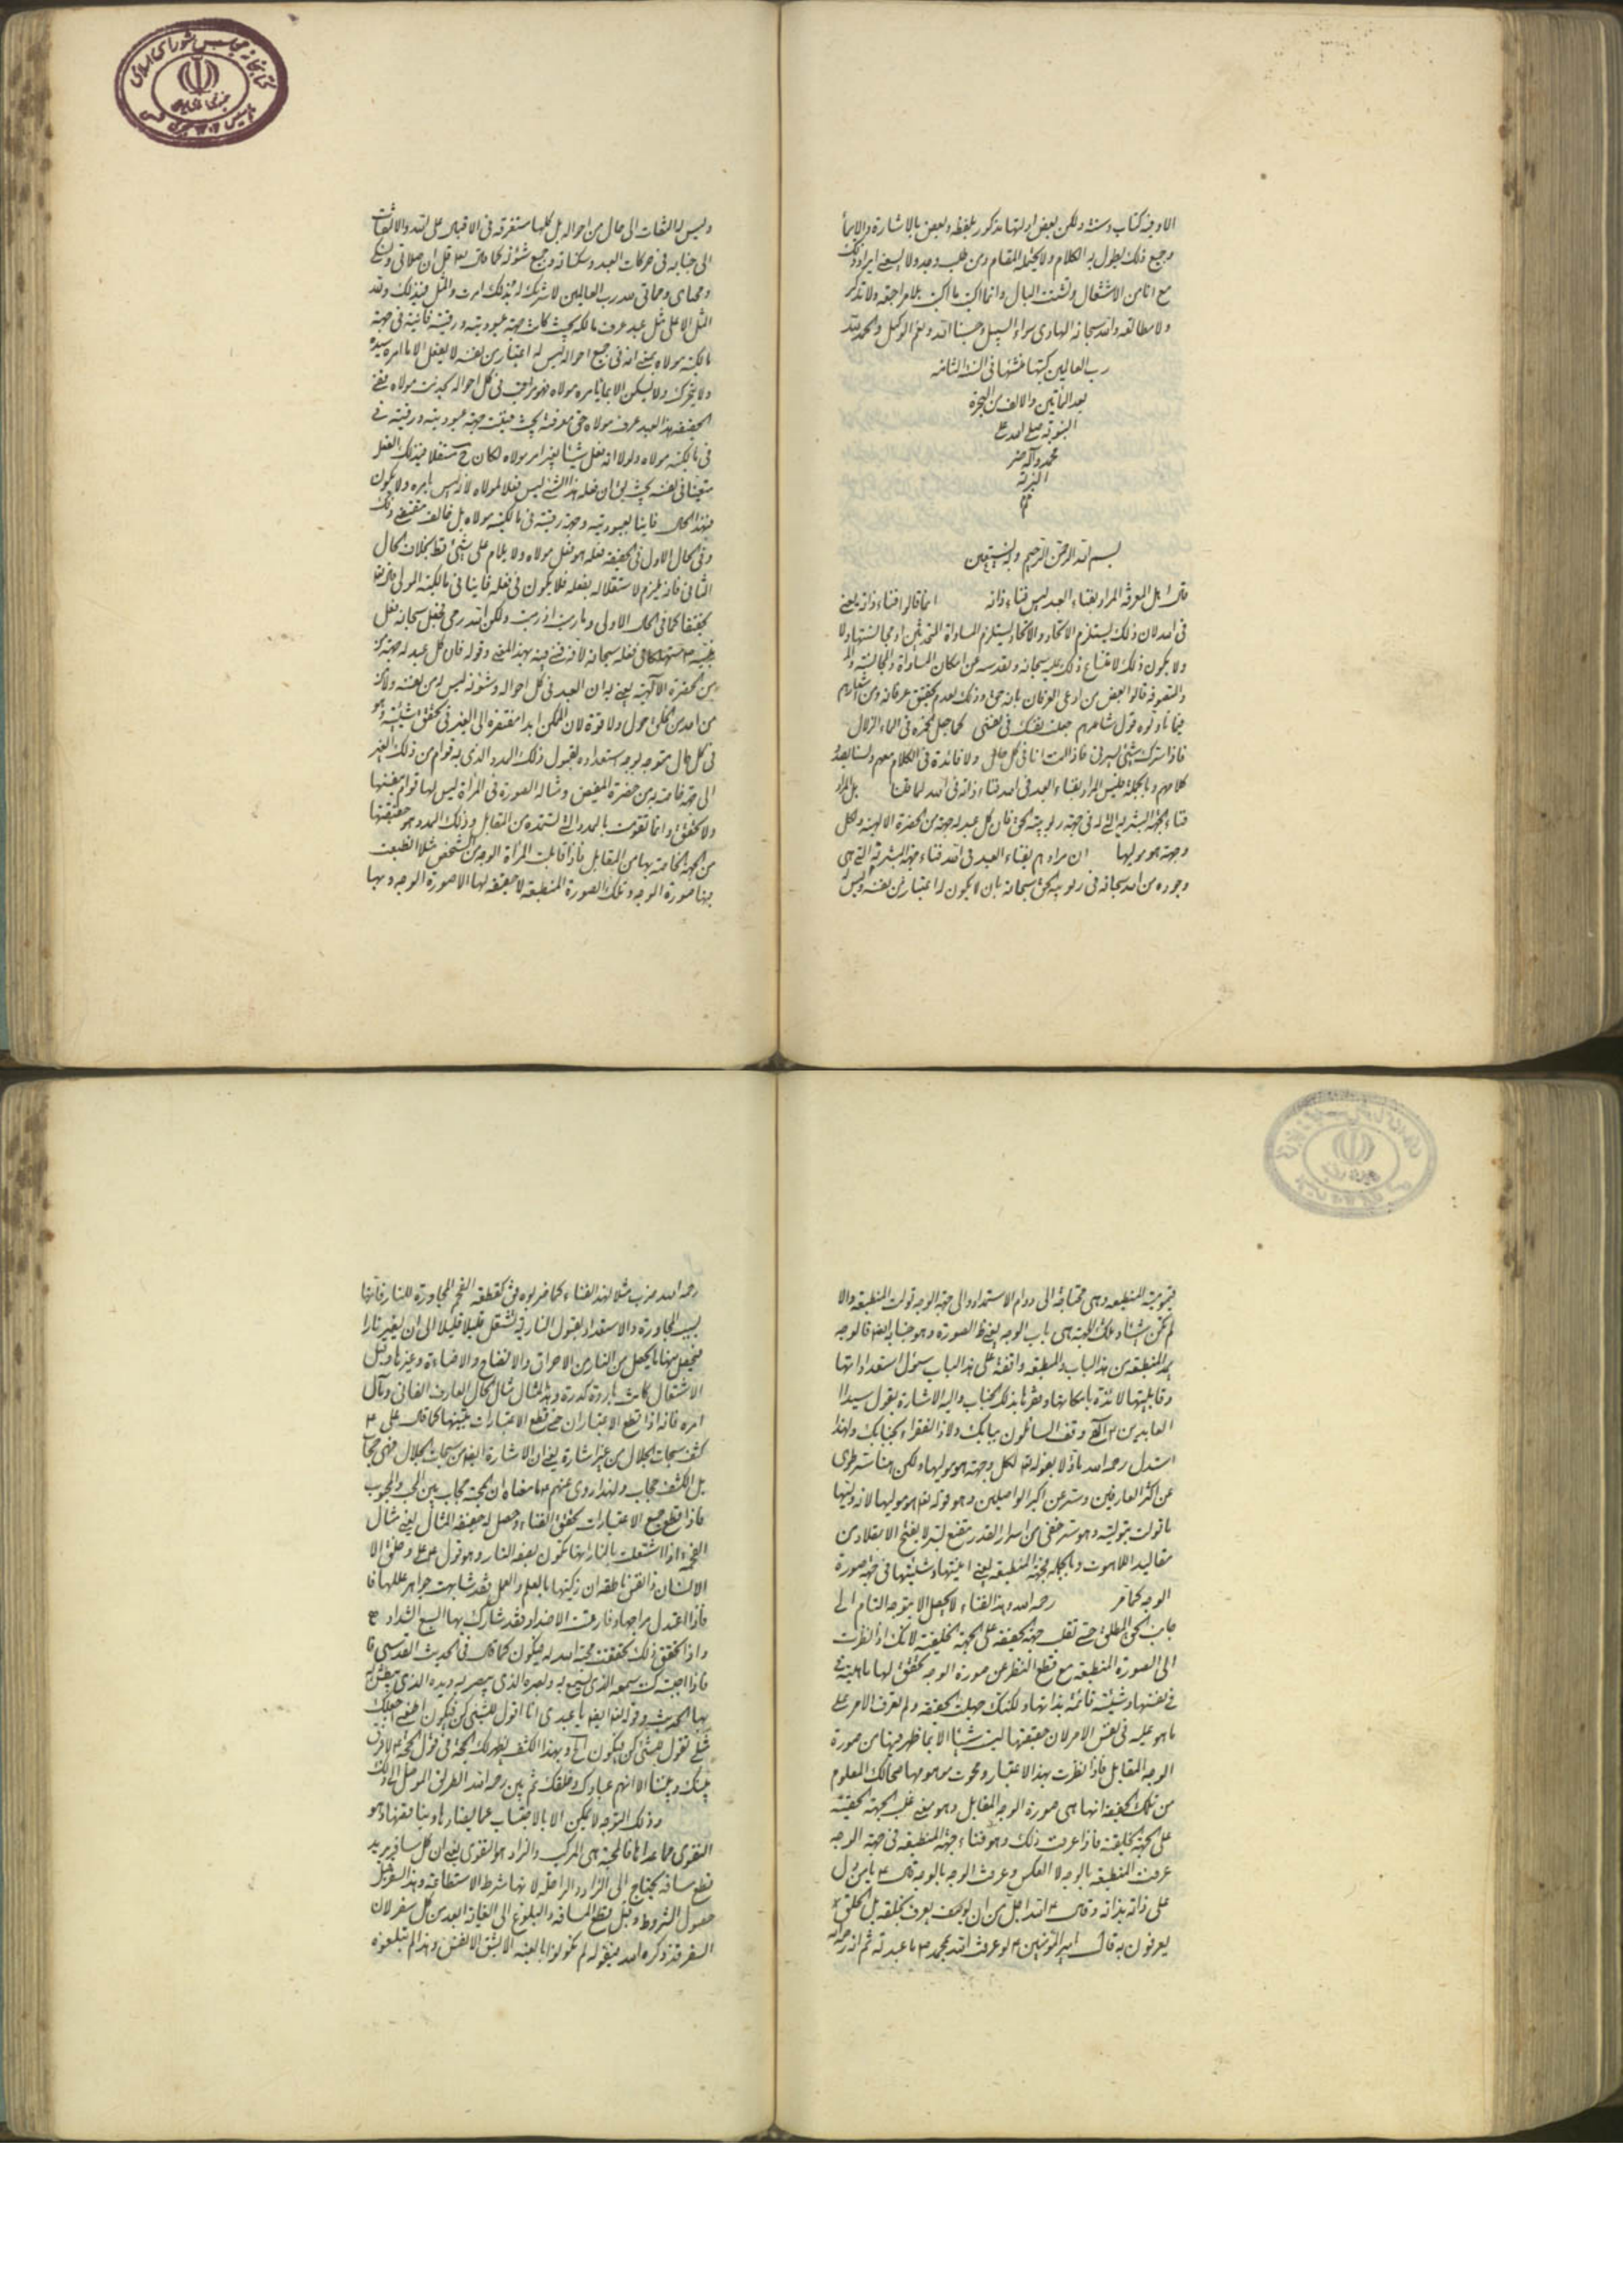 الا وفيه كتاب وسنة ولكن بعض ادلتها مذكور بلفظه وبعض بالاشارة والايما
وجميع ذلك يطول به الكلام ولا يحتمله المقام ومن طلب وجد ولا يسعنى ايراد ذلك
مع انا من الاشتغال وتشتت البال وانما اكتب ما اكتب بلا مراجعة ولا تذكر
ولا مطالعة والله سبحانه الهادى سواء السبيل وحسبنا الله ونعم الوكيل والحمد لله
رب العالمين كتبها منشئها فى السنة الثامنه
بعد المأتين والالف من الهجرة
النبوية صلى الله على
محمد وآله خير
البرية
تم
بسم الله الرحمن الرحيم وبه نستعين
قال اهل المعرفة المراد بفناء العبد ليس فناء ذاته انما قالوا فناء ذاته يعنى
فى الله لان ذلك يستلزم الاتحاد والاتحاد يستلزم المساواة
ولا يكون ذلك لامتناع ذلك عليه سبحانه وتقدسه عن امكان المساواة والمجانسة
والتصوفة قالوا لبعض من ادعى العرفان بانه حق وذلك لعدم تحقيق عرفانه ومن اشعارهم
فيما تاولوه قول شاعرهم جعلت نفسك فى نفسى كما جعل الخمرة فى الماء الزلال
فاذا سرك شىء سرنى فاذا انت انا فى كل حال ولا فائدة فى الكلام معهم ولسنا بصدد
كلامهم وبالجملة فليس المراد بفناء العبد فى الله فناء ذاته فى الله لما قلنا بل المراد
فناء الجهة البشرية التى له فى جهة ربوبية الحق فان كل عبد له جهة من الحضرة الالهية ولكل
وجهة هو موليها ان مرادهم بفناء العبد فى الله فناء جهة البشرية التى هى
وجوده من الله سبحانه فى ربوبية الحق سبحانه بان لا يكون له اعتبار من نفسه وليس له
وليس له التفات الى حال من احواله بل كلها مستغرقة فى الاقبال على الله والالتفات
الى جنابه فى حركات العبد وسكناته وجميع شئونه كما قال تعالى قل ان صلاتى ونسكى
ومحياى ومماتى لله رب العالمين لا شريك له بذلك امرت والمثل فيذلك ولله
المثل الاعلى مثل عبد عرف مالكه بحيث كانت جهة عبوديته ورقيته فانية فى جهة
مالكية مولاه بمعنى انه فى جميع احواله ليس له اعتبار من نفسه لا يفعل الا ما امره سيده
ولا يتحرك ولا يسكن الا بما يأمره مولاه فهو مراقب فى كل احواله لخدمت مولاه ففى
الحقيقة هذا العبد عرف مولاه حق معرفته بحيث فنيت جهة عبوديته ورقيته فى
فى مالكية مولاه ولو انه فعل شيئا بغير امر مولاه لكان ح مستقلا فيذلك الفعل
متعينا فى نفسه بحيث يق ان فعله هذا الشىء ليس فعلا لمولاه لانه ليس بامره ولا يكون
فيهذا الحال فانيا بعبوديته وجهة رقيته فى مالكية مولاه بل خالف مقتضى ذلك
وفى الحال الاول فى الحقيقة فعله هو فعل مولاه ولا يلام على شىء قط بخلاف الحال
الثانى فانه يلزم لاستقلاله بفعله فلا يكون فى فعله فانيا فى مالكية المولى
كما فى الحال الاولى وما رميت اذ رميت ولكن الله رمى فجعل سبحانه فعل
نبيه فعله سبحانه لانه فنى فيه بهذا المعنى وقوله فان كل عبد له جهة
من الحضرة الآلهية يعنى به ان العبد فى كل احواله وشئونه ليس له من نفسه ولا
من احد من الخلق حول ولا قوة لان الممكن ابدا مفتقر الى الغير فى تحقق شيئيته وهو
فى كل حال متوجه لوجه استعداده بقبول ذلك المدد الذى به قوامه من ذلك الغير
الى جهة خاصة به من حضرة المفيض ومثاله الصورة فى المرآة ليس لها قوام بنفسها
ولا تحقق وانما تقومت بالمدد التى تستمده من المقابل وذلك المدد هو حقيقتها
من الجهة الخاصة بها من المقابل فاذا قابلت المرآة الوجه من الشخص مثلا انطبعت
فيها صورة الوجه وتلك الصورة المنطبعة لا حقيقة لها الا صورة الوجه وبها
قيومية المنطبعة وهى محتاجة الى دوام الاستمداد والى جهة الوجه تولت المنطبعة والا
لم تكن شيئا وتلك الجهة هى باب الوجه يعنى ظ الصورة وهو جنابه ايضا فالوجه
يمد المنطبعة من هذا الباب والمنطبعة واقفة على هذا الباب بسؤال استعداداتها
وقابليتها لائذة بامكانها وفقرها بذلك الجناب واليه الاشارة بقول سيد
العابدين ع الهى وقف السائلون ببابك ولاذ الفقراء بجنابك ولهذا
استدل رحمه الله تاولا بقوله تعالى لكل وجهة هو موليها ولكن هنا سر طوى
عن اكثر العارفين وستر عن اكبر الواصلين وهو قوله تعالى هو موليها لانه وليها
ما تولت بتوليته وهو سر خفى من اسرار القدر مقنع بسر لا يفتح الا بمقلاد من
مقاليد اللاهوت وبالجملة فجهة المنطبعة يعنى انيتها وشيئيتها فى جهة صورة
الوجه كما مر رحمه الله وهذا الفناء لا يحصل الا بتوجه التام الى
جانب الحق المطلق حتى تغلب جهة الحقيقة على الجهة الخلقية لانك اذا نظرت
الى الصورة المنطبعة مع قطع النظر عن صورة الوجه تحقق لها ماهية
فى نفسها وشيئية قائمة بذاتها ولكنك جهلت الحقيقة ولم تعرف الامر على
ما هو عليه فى نفس الامر لان حقيقتها ليست شيئا الا بما ظهر فيها من صورة
الوجه المقابل فاذا نظرت بهذا الاعتبار ومحوت موهومها صحا لك المعلوم
من تلك الحقيقة انها هى صورة الوجه المقابل وهو معنى غلب الجهة الحقية
على الجهة الخلقية فاذا عرفت ذلك وهو فناء جهة المنطبعة فى جهة الوجه
عرفت المنطبعة بالوجه لا العكس وعرفت الوجه بالوجه قال ع يا من دل
على ذاته بذاته وقال ع الله اجل من ان يعرف بخلقه بل الخلق
يعرفون به قال امير المؤمنين ع لو عرفت الله بمحمد ص ما عبدته ثم انه رحمه الله
رحمه الله ضرب مثلا لهذا الفناء كما ضربوه فق كقطعة الفحم المجاورة للنار فانها
بسبب المجاورة والاستعداد بقبول النارية تشتعل قليلا قليلا الى ان تصير نارا
فيحصل منها ما يحصل من النار من الاحراق والانضاج والاضاءة وغيرها وقبل
الاشتعال كانت باردة كدرة وهذا المثال مثال لحال العارف الفانى ومآل
امره فانه اذا قطع الاعتبارات حتى قطع الاعتبارات بنفيها كما قال على ع
كشف سبحات الجلال من غير اشارة يعنى ان الاشارة ايضا من سبحات الجلال فهى حجاب
بل الكشف حجاب ولهذا روى عنهم ع ما معناه ان المحبة حجاب بين المحب والمحبوب
فاذا قطع جميع الاعتبارات تحقق الفناء وحصل له حقيقة المثال يعنى مثال
الفحمة اذا اشتعلت بالنار انها تكون بصفة النار وهو قول على ع وخلق الا
الانسان ذا نفس ناطقة ان زكيها بالعلم والعمل فقد شابهت جواهر عللها فا
فاذا اعتدل مزاجها وفارقت الاضداد فقد شارك بها السبع الشداد ع
واذا تحقق ذلك تحققت محبة الله له فيكون كما قال فى الحديث القدسى فا
فاذا احببته كنت سمعه الذى يسمع به وبصره الذى يبصر به ويده الذى يبطش
بها الحديث وقوله ايضا يا عبدى انا اقول للشىء كن فيكون اطعنى اجعلك
مثلى تقول للشىء كن فيكون الخ وبهذا الكشف يظهر لك الحجة فى قول الحجة ع لا فرق
بينك وبينها الا انهم عبادك وخلقك ثم بين رحمه الله الطريق الموصل الى ذلك
وذلك التوجه لا يمكن الا بالاجتناب عما يضادها وينافيها وهو
التقوى مما عداها فالمحبة هى المركب والزاد هو التقوى يعنى ان كل سافر يريد
قطع مسافة يحتاج الى الزاد والراحلة لانها شرط الاستطاعة وهذا السفر قبل
حصول الشروط وقبل قطع المسافة والبلوغ الى الغاية ابعد من كل سفر لان
السفر قد ذكره الله فى قوله لم تكونوا بالغيه الا بشق الانفس وهذا لم تبلغوه